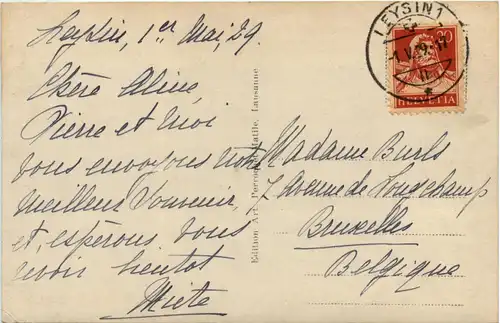 Leysin, 1er Mai, 29.
Chère Aline,
Pierre et moi
vous envoyons notre
meilleur souvenir,
et, espérons vous
revoir bientôt
Miete
Edition Art. Perrochet-Matile, Lausanne
LEYSIN 1
1.V.29.-17
20
HELVETIA
Madame Burls
7 Avenue de Longchamp
Bruxelles
Belgique